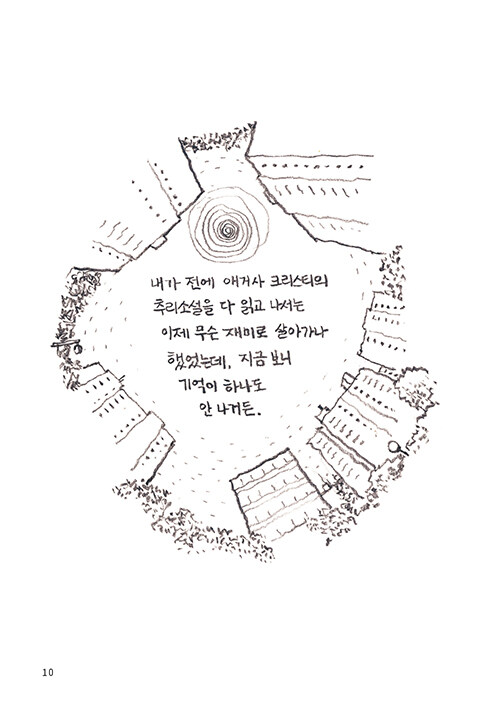 내가 전에 애거사 크리스티의
추리소설을 다 읽고 나서는
이제 무슨 재미로 살아가나
했었는데, 지금 보니
기억이 하나도
안 나거든.
10